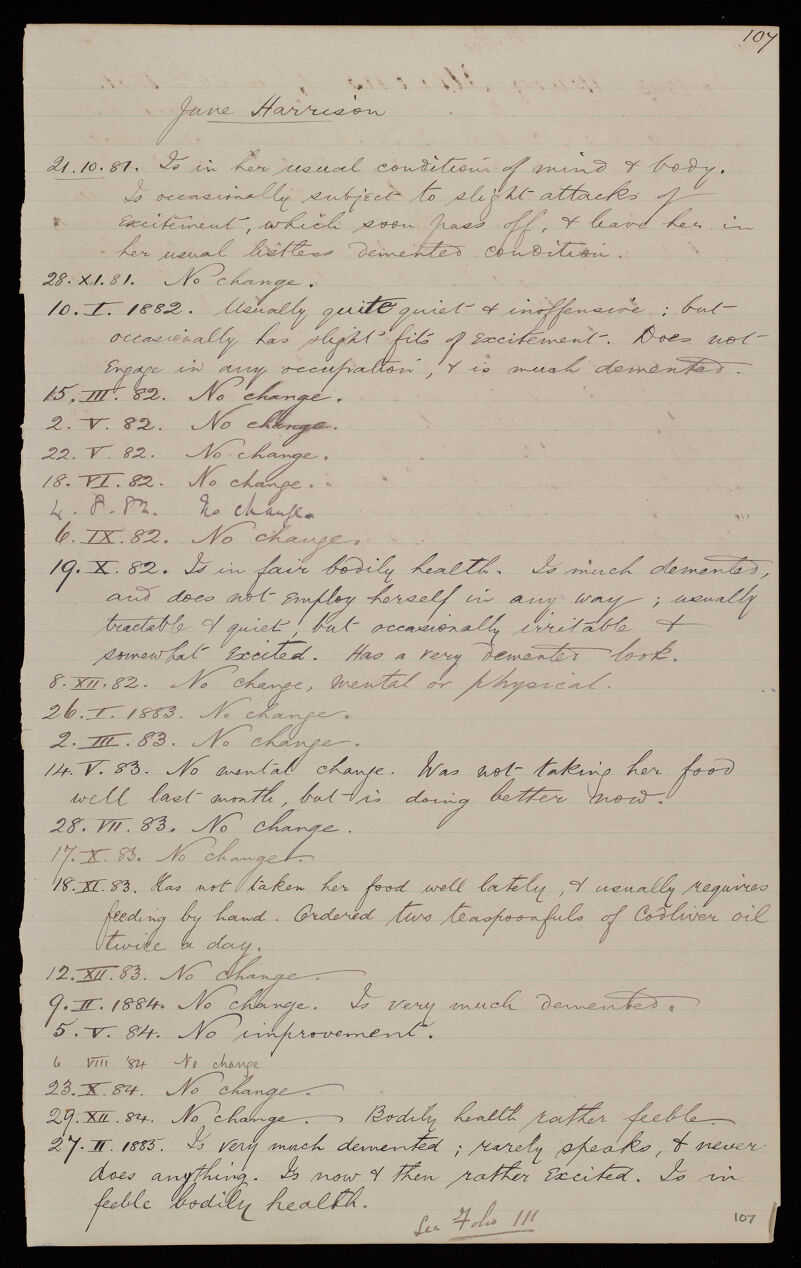 107
Jane Harrison
21.10.81. Is in her usual condition of mind & body.
Is occasionally subject to slight attacks of
excitement, which soon pass off, & leave her in
her usual listless demented condition.
28.XI.81. No change.
10.I.1882. Usually quite quiet & inoffensive; but
occasionally has slight fits of excitement. Does not
engage in any occupation, & is much demented.
15.III.82. No change.
2.V.82. No change.
22.V.82. No change.
18.VI.82. No change.
4.8.82. No change
6.IX.82. No change.
19.X.82. Is in fair bodily health. Is much demented,
and does not employ herself in any way; usually
tractable & quiet, but occasionally irritable &
somewhat excited. Has a very demented look.
8.XII.82. No change, mental or physical.
26.I.1883. No change.
2.III.83. No change.
14.V.83. No mental change. Was not taking her food
well last month, but is doing better now.
28.VII.83. No change.
17.X.83. No change.
18.XI.83. Has not taken her food well lately, & usually requires
feeding by hand. Ordered two teaspoonfuls of Codliver oil
twice a day.
12.XII.83. No change.
9.II.1884. No change. Is very much demented.
5.V.84. No improvement.
6 VIII '84 No change
23.X.84. No change.
29.XII.84. No change. Bodily health rather feeble.
27.II.1885. Is very much demented; rarely speaks, & never
does anything. Is now & then rather excited. Is in
feeble bodily health.
See Folio 111
107